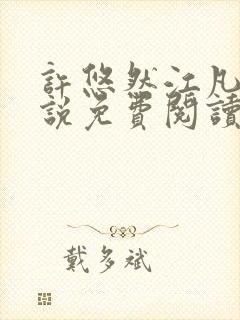 許悠然江凡
說免費閱讀
戴多斌